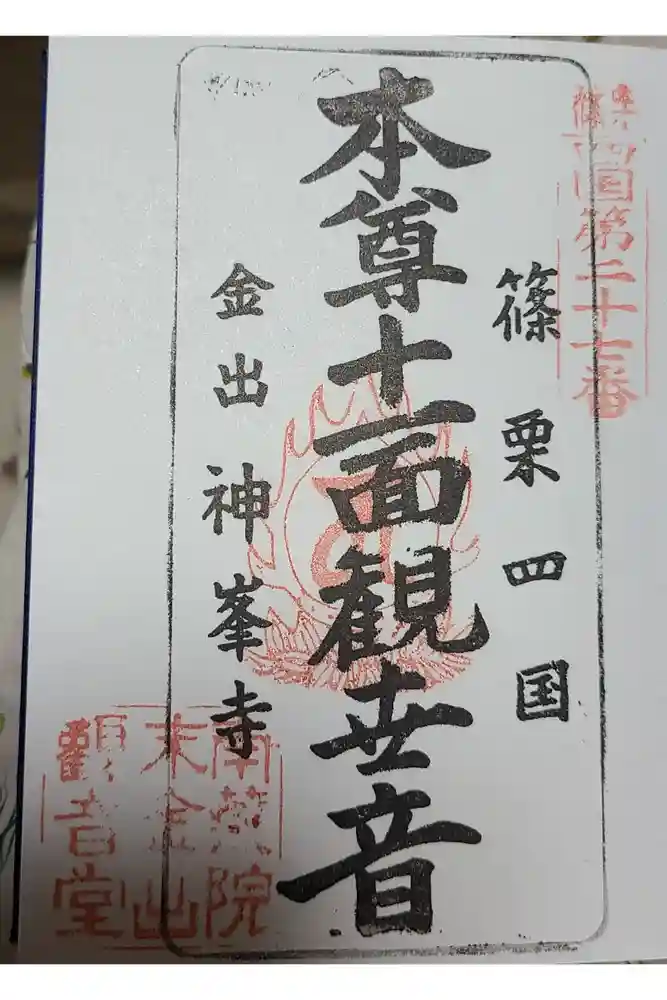 篠栗四国第二十七番
篠栗四国
本尊十一面観世音
金出 神峯寺
南蔵院
末金出
観音堂